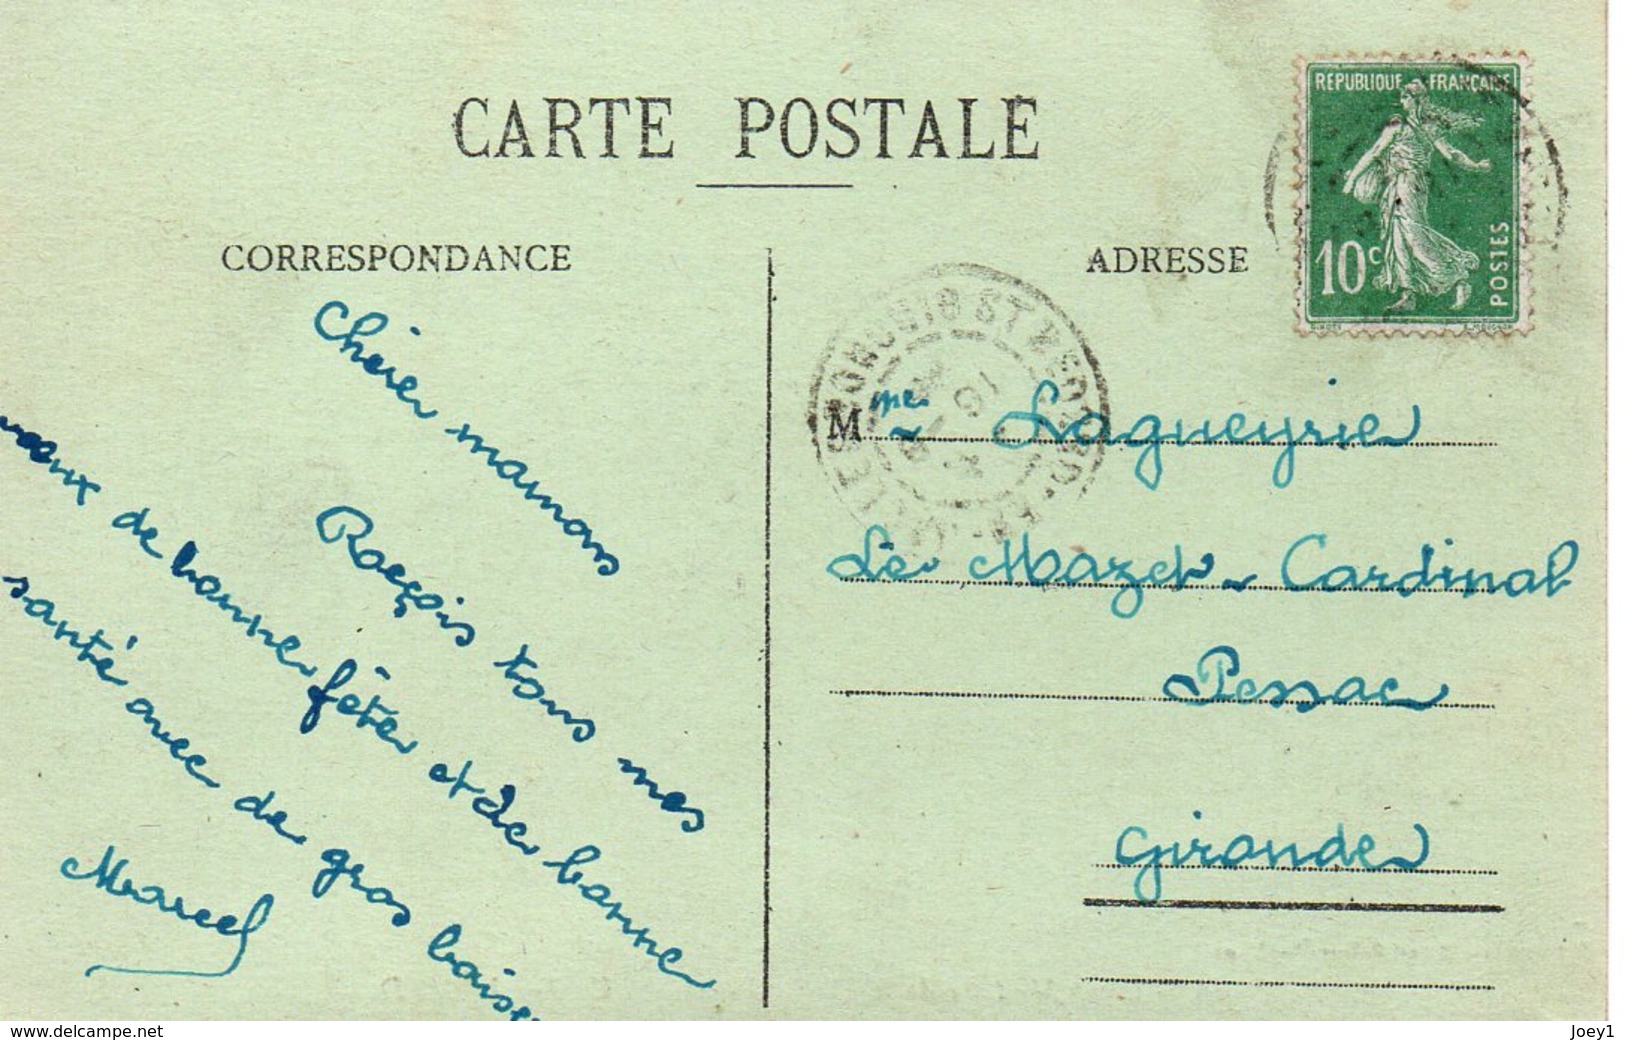 CARTE POSTALE
CORRESPONDANCE
ADRESSE
RÉPUBLIQUE FRANÇAISE
10c
POSTES
Chère maman
Reçois tous mes
vœux de bonne fête et de bonne
santé avec de gros baise
Marcel
Mme Lagueyrie
Le Mazet Cardinal
Pessac
Gironde
www.delcampe.net
Joey1